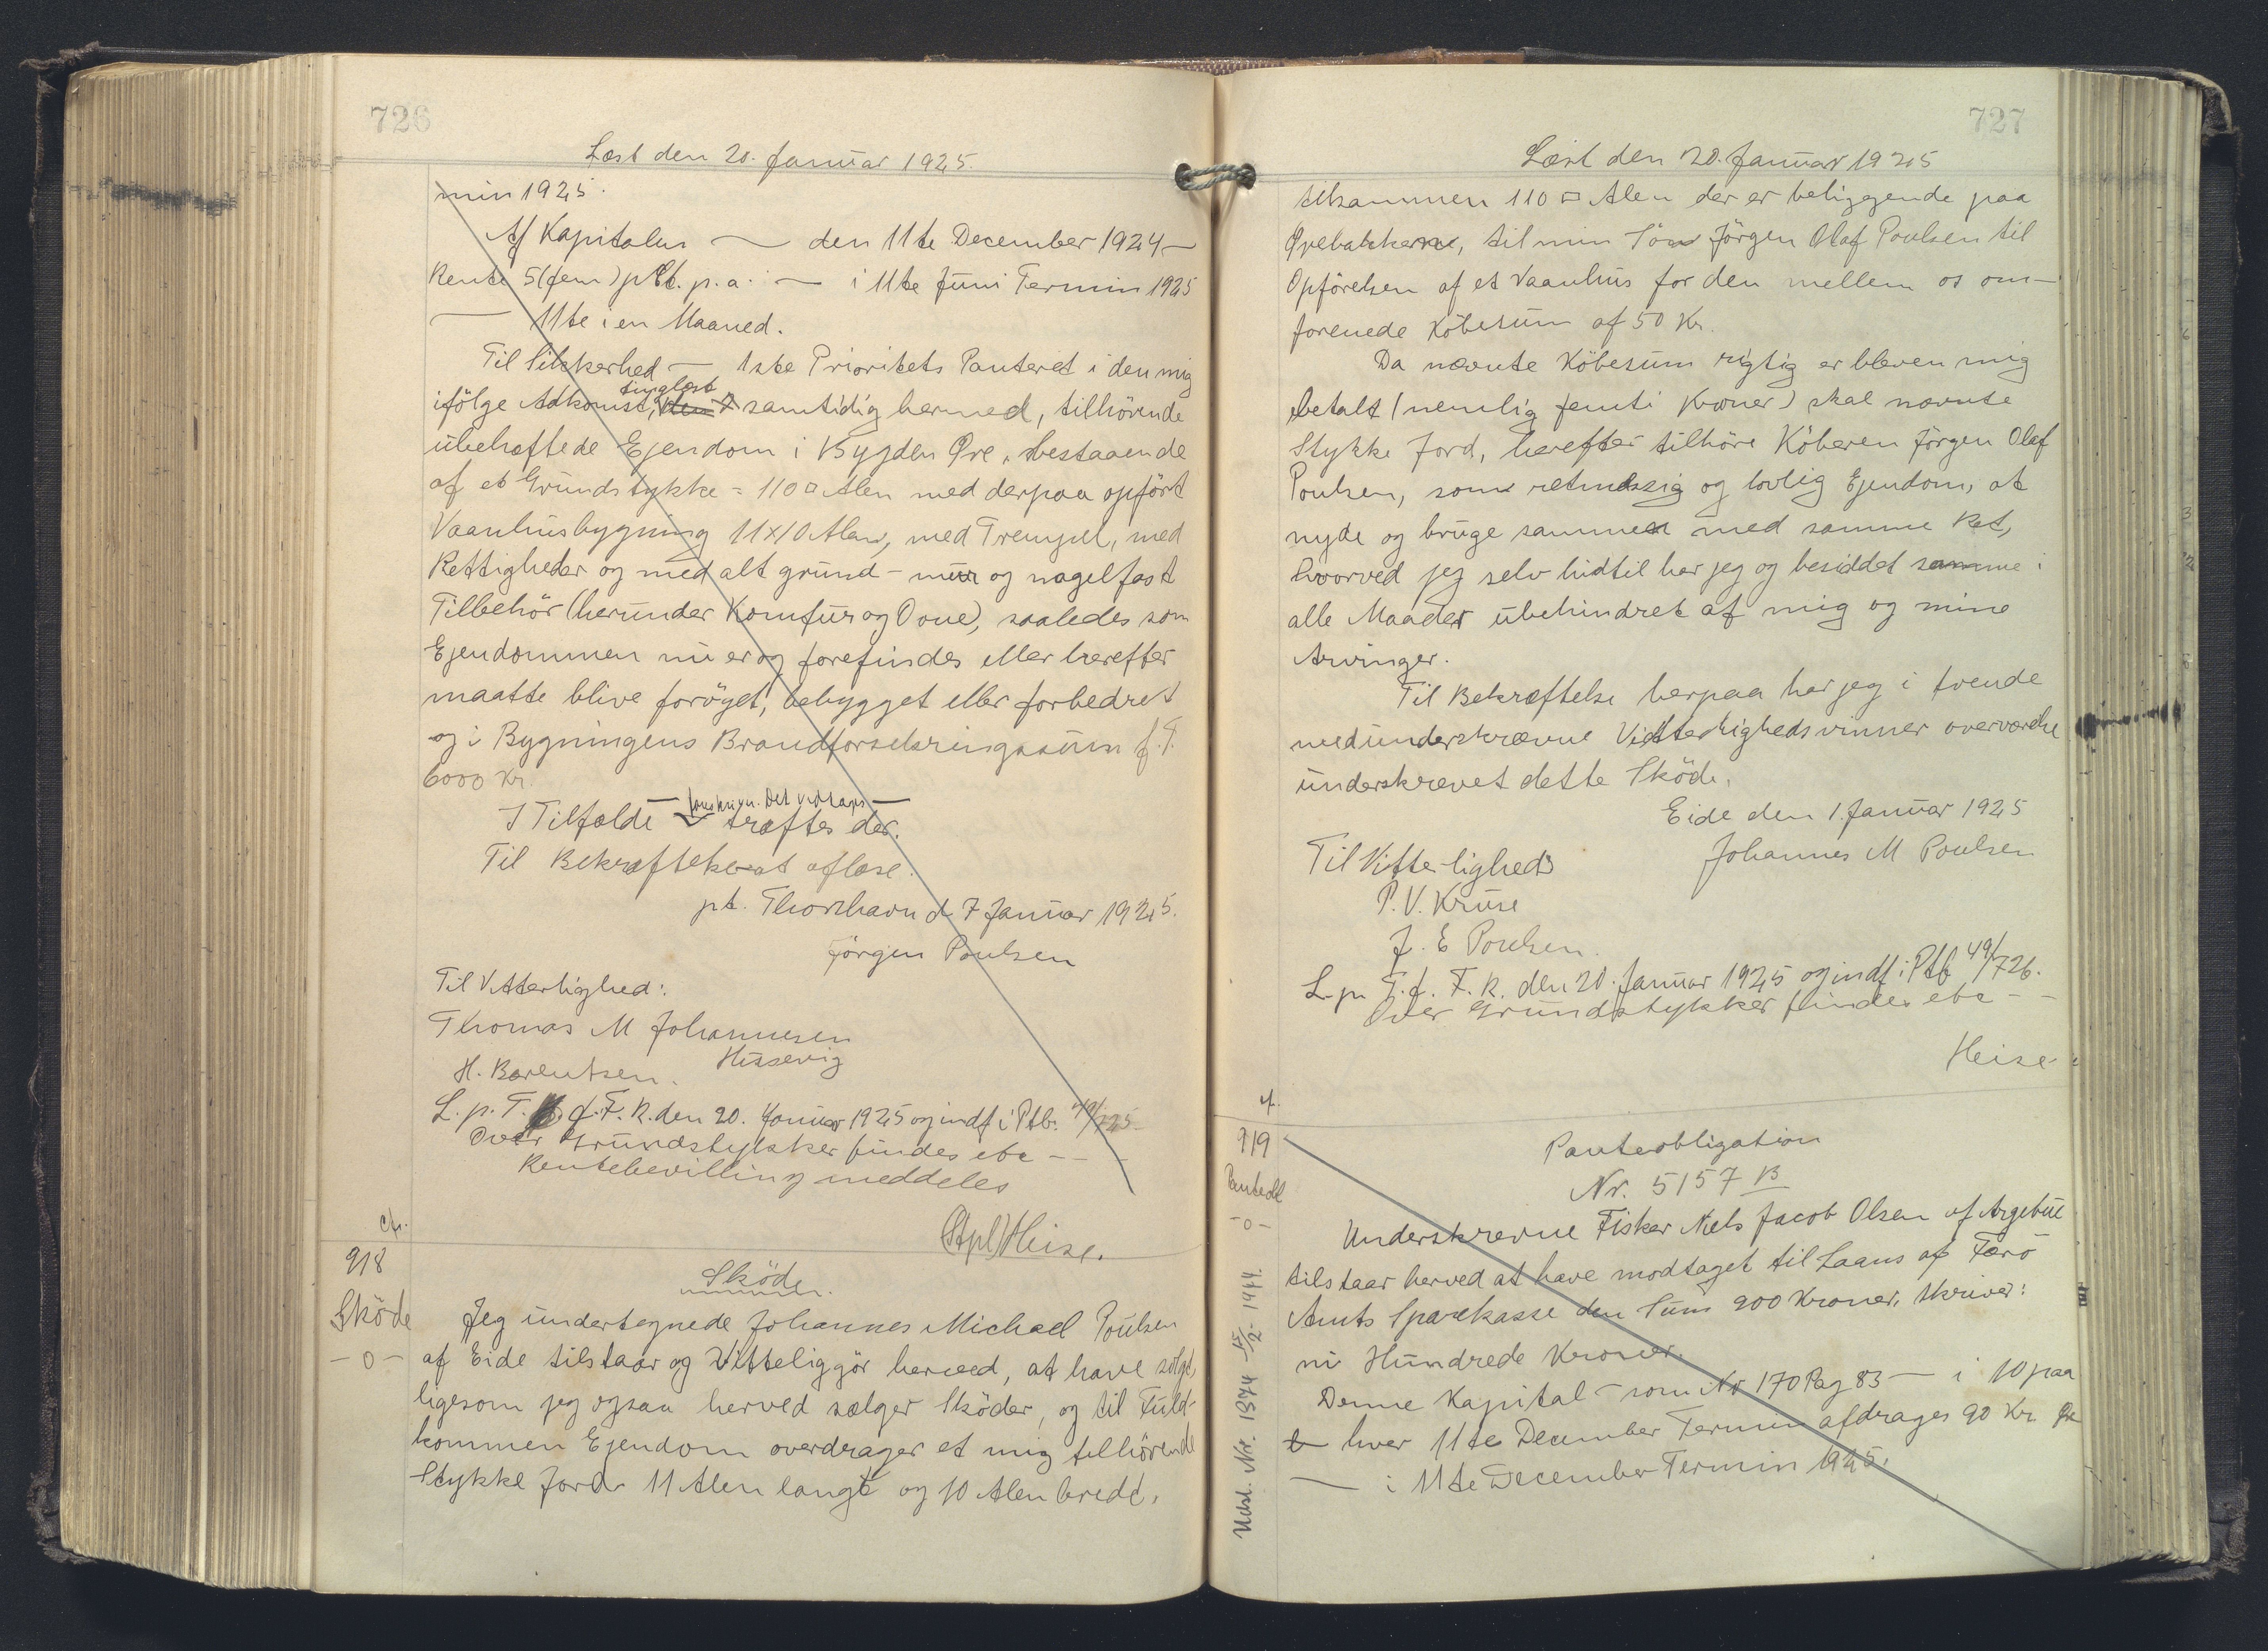 726
Læst den 20. Januar 1925.
min 1925.
Af Kapitalen — den 11te December 1924 —
Rente 5 (fem) pCt. p. a. — i 11te Juni Termin 1925
— 11te i en Maaned.
Til Sikkerhed — 1ste Prioritets Panteret i den mig
tinglæst
ifölge Adkomst, samtidig hermed, tilhörende
ubehæftede Ejendom i Bygden Öre, bestaaende
af et Grundstykke = 110 □ Alen med derpaa opfört
Vaanhusbygning 11×10 Alen, med Trempel, med
Rettigheder og med alt grund- mur og nagelfast
Tilbehör (herunder Komfur og Ovne), saaledes som
Ejendommen nu er og forefindes eller herefter
maatte blive foröget, bebygget eller forbedret
og i Bygningens Brandforsekringssum f. T.
6000 Kr.
I Tilfælde — Det vedtages —
træftes der.
Til Bekræftelse at aflæse.
pt. Thorshavn d. 7 Januar 1925.
Jörgen Poulsen
Til Vitterlighed:
Thomas M Johannesen
Husevig
H. Barentsen.
L. p. T. f. F. R. den 20. Januar 1925 og indf i Ptb. 49/725
Over Grundstykker findes ebc - - -
Rentebevilling meddeles
(Stpl) Heise.
cfr.
918
Sköde
- 0 -
Sköde
Jeg undertegnede Johannes Michael Poulsen
af Eide tilstaar og Vitteliggör herved, at have solgt,
ligesom jeg ogsaa herved sælger Sköder, og til Fuld-
kommen Ejendom overdrager et mig tilhörende
Stykke Jord 11 Alen langt og 10 Alen bredt,
727
Læst den 20. Januar 1925
tilsammen 110 □ Alen der er beliggende paa
Örebakkerne, til min Sön Jörgen Olaf Poulsen til
Opförelsen af et Vaanhus for den mellem os om-
forenede Köbesum af 50 Kr.
Da nævnte Köbesum rigtig er bleven mig
betalt (nemlig femti Kroner) skal nævnte
Stykke Jord, herefter tilhöre Köberen Jörgen Olaf
Poulsen, som retmæssig og lovlig Ejendom, at
nyde og bruge sammen med samme Ret,
hvorved jeg selv hidtil har jeg og besiddet samme i
alle Maader ubehindret af mig og mine
Arvinger.
Til Bekræftelse herpaa har jeg i tvende
medunderskrævne Vidtterligheds vinner overværelse
underskrevet dette Sköde.
Eide den 1. Januar 1925
Johannes M Poulsen
Til Vitte-lighed:
P. V. Kruse
J. E Poulsen.
L. p. T. f. F. R. den 20. Januar 1925 og indf i Ptb 49/726.
Over Grundstykker findes ebc - -
Heise
cf.
919
Pantedl
- 0 -
Udsl. Nr. 1374 15/2- 1944.
Panteobligation
Nr. 5157 B
Underskrevne Fisker Niels Jacob Olsen af Argebue
tilstaar herved at have modtaget til Laans af Færö
Amts Sparekasse den Sum 900 Kroner, skriver:
ni Hundrede Kroner.
Denne Kapital — som Nr 170 Pag 83 — i 10 paa
hver 11te December Termin afdrages 90 Kr.
— i 11te December Termin 1925.